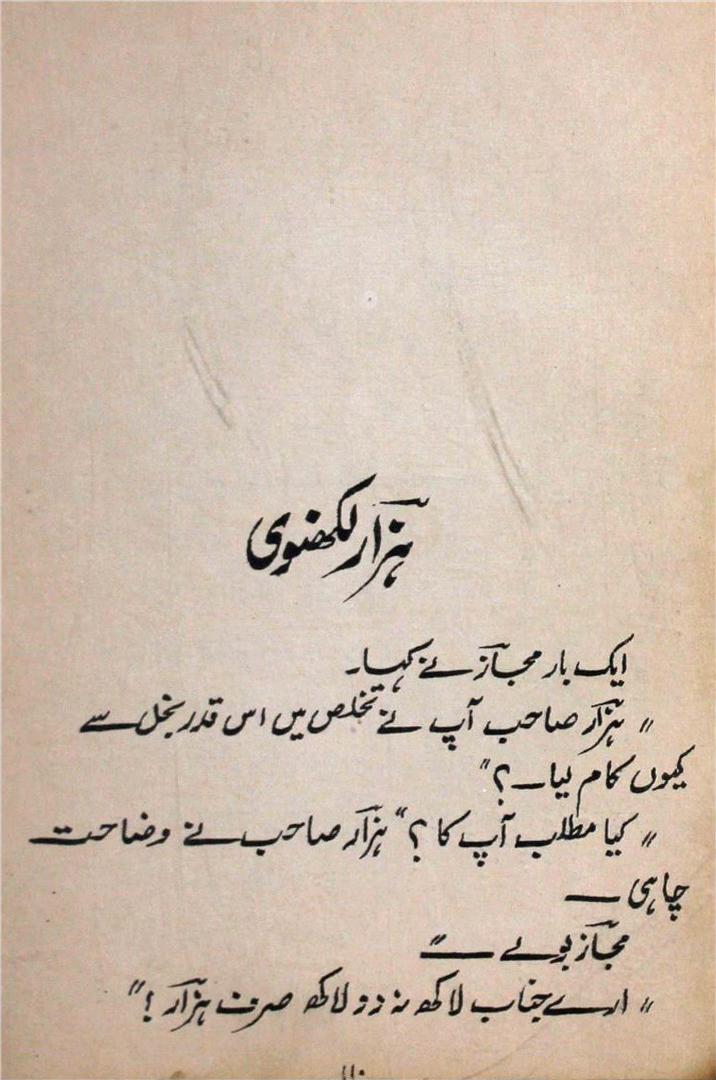 ہزار لکھنوی
ایک بار مجاز نے کہا۔
"ہزار صاحب آپ نے تخلص میں اس قدر بخل سے
کیوں کام لیا۔؟"
"کیا مطلب آپ کا؟" ہزار صاحب نے وضاحت
چاہی ۔
مجاز بولے ۔"
"ارے جناب لاکھ نہ دو لاکھ صرف ہزار!"
۱۱۰